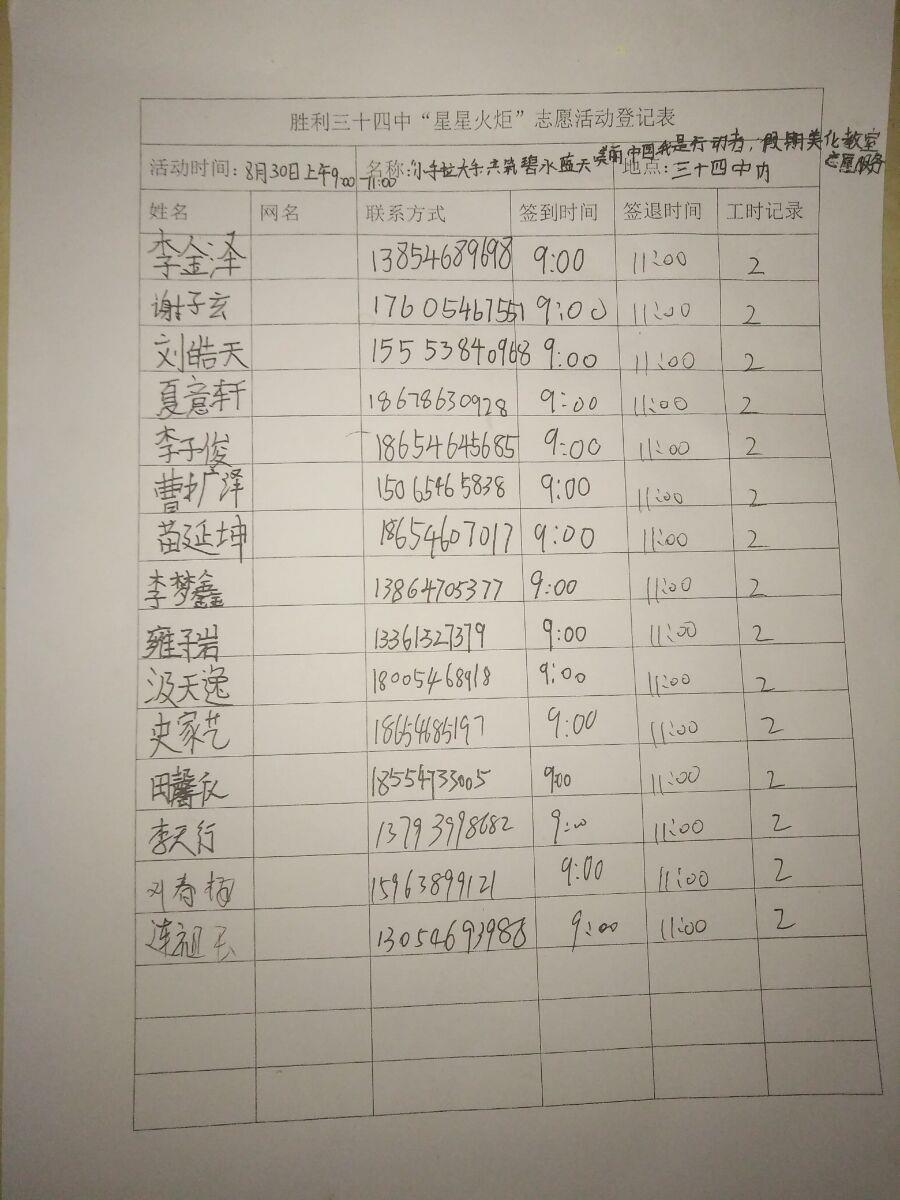 胜利三十四中“星星火炬”志愿活动登记表
活动时间：8月30日上午9:00—11:00 名称：小手拉大手共筑碧水蓝天 美丽中国我是行动者，假期美化教室志愿服务 地点：三十四中内
姓名 网名 联系方式 签到时间 签退时间 工时记录
李金泽 13854689698 9:00 11:00 2
谢子玄 17605467551 9:00 11:00 2
刘皓天 15553840968 9:00 11:00 2
夏意轩 18678630928 9:00 11:00 2
李子俊 18654645685 9:00 11:00 2
曹广泽 15065465838 9:00 11:00 2
苗延坤 18654607017 9:00 11:00 2
李梦鑫 13864705377 9:00 11:00 2
雍子岩 13361327379 9:00 11:00 2
汲天逸 18005468918 9:00 11:00 2
史家艺 18654685197 9:00 11:00 2
田馨 18554733005 9:00 11:00 2
李天行 13793998682 9:00 11:00 2
刘春楠 15963899121 9:00 11:00 2
连祖 13054693988 9:00 11:00 2